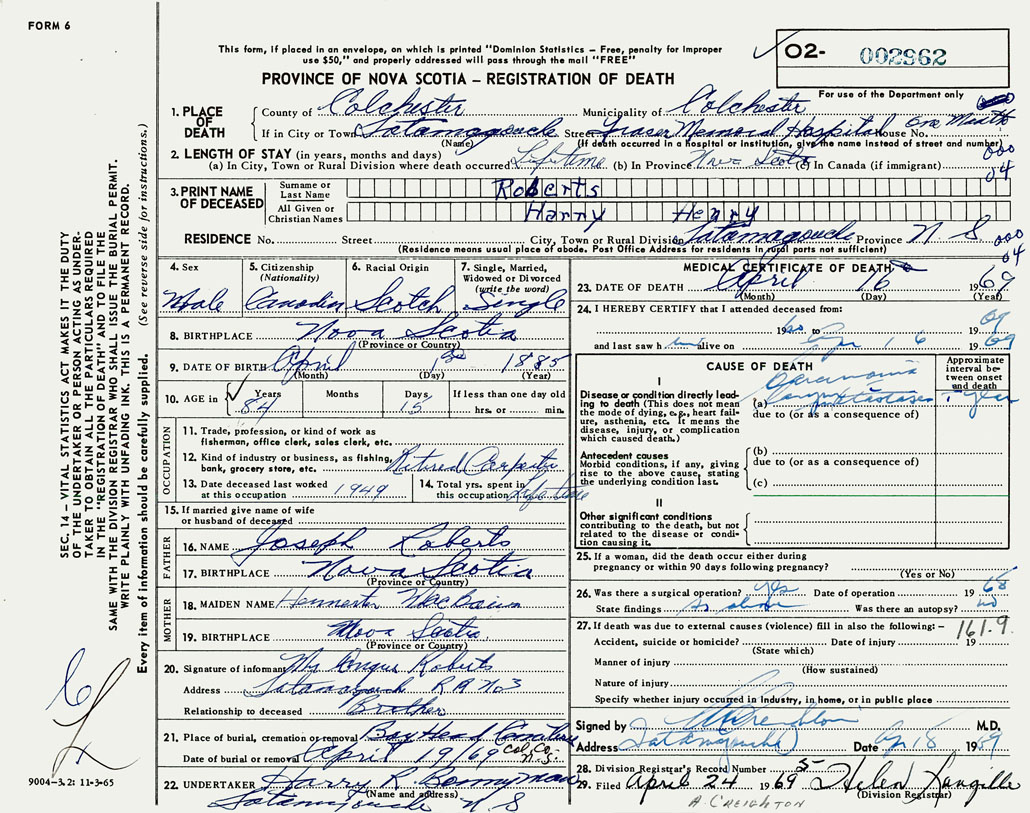 FORM 6
This form, if placed in an envelope, on which is printed "Dominion Statistics – Free, penalty for improper
use $50," and properly addressed will pass through the mail "FREE"
O2- 002962
For use of the Department only
PROVINCE OF NOVA SCOTIA – REGISTRATION OF DEATH
1. PLACE OF DEATH
County of Colchester Municipality of Colchester
If in City or Town Tatamagouche Street Fraser Memorial Hospital House No.
(Name) (If death occurred in a Hospital or Institution, give the name instead of street and number)
000
04
2. LENGTH OF STAY (in years, months and days)
(a) In City, Town or Rural Division where death occurred Lifetime (b) In Province Nova Scotia (c) In Canada (if immigrant)
3. PRINT NAME OF DECEASED
Surname or Last Name Roberts
All Given or Christian Names Harry Henry
RESIDENCE No. Street City, Town or Rural Division Tatamagouche Province N S
(Residence means usual place of abode. Post Office Address for residents in rural parts not sufficient)
000
04
4. Sex Male
5. Citizenship (Nationality) Canadian
6. Racial Origin Scotch
7. Single, Married, Widowed or Divorced (write the word) Single
8. BIRTHPLACE Nova Scotia
(Province or Country)
9. DATE OF BIRTH April 1st 1885
(Month) (Day) (Year)
10. AGE in Years Months Days If less than one day old
84 15 hrs. or min.
OCCUPATION
11. Trade, profession, or kind of work as
fisherman, office clerk, sales clerk, etc.
12. Kind of industry or business, as fishing,
bank, grocery store, etc. Retired Carpenter
13. Date deceased last worked
at this occupation 1949
14. Total yrs. spent in
this occupation Lifetime
15. If married give name of wife
or husband of deceased
FATHER
16. NAME Joseph Roberts
17. BIRTHPLACE Nova Scotia
(Province or Country)
MOTHER
18. MAIDEN NAME
19. BIRTHPLACE Nova Scotia
(Province or Country)
20. Signature of informant Mr Angus Roberts
Address Tatamagouche R R No 3
Relationship to deceased Brother
21. Place of burial, cremation or removal Bay Head Cemetery
Date of burial or removal April 19/69 Col. Co. N.S.
22. UNDERTAKER Harry R Bonnyman
(Name and address)
Tatamagouche N S
MEDICAL CERTIFICATE OF DEATH
23. DATE OF DEATH April 16 1969
(Month) (Day) (Year)
24. I HEREBY CERTIFY that I attended deceased from:
1960 to 1969
and last saw h im alive on Apr 16 1969
CAUSE OF DEATH
Approximate interval between onset and death
I
Disease or condition directly leading to death (This does not mean the mode of dying, e.g., heart failure, asthenia, etc. It means the disease, injury, or complication which caused death.)
(a) Carcinoma
year
due to (or as a consequence of)
Antecedent causes
Morbid conditions, if any, giving rise to the above cause, stating the underlying condition last.
(b)
due to (or as a consequence of)
(c)
II
Other significant conditions contributing to the death, but not related to the disease or condition causing it.
25. If a woman, did the death occur either during
pregnancy or within 90 days following pregnancy?
(Yes or No)
26. Was there a surgical operation? Yes Date of operation 1968
State findings As above Was there an autopsy? no
27. If death was due to external causes (violence) fill in also the following: –
161.9
Accident, suicide or homicide? Date of injury 19
(State which)
Manner of injury
(How sustained)
Nature of injury
Specify whether injury occurred in Industry, in home, or in public place
Signed by M.D.
Address Tatamagouche Date Ap 18 1969
28. Division Registrar's Record Number 5
29. Filed April 24 1969 Helen Langille
(Division Registrar)
A. CREIGHTON
SEC. 14 – VITAL STATISTICS ACT MAKES IT THE DUTY
OF THE UNDERTAKER OR PERSON ACTING AS UNDER-
TAKER TO OBTAIN ALL THE PARTICULARS REQUIRED
IN THE "REGISTRATION OF DEATH" AND TO FILE THE
SAME WITH THE DIVISION REGISTRAR WHO SHALL ISSUE THE BURIAL PERMIT.
WRITE PLAINLY WITH UNFADING INK. THIS IS A PERMANENT RECORD.
Every item of information should be carefully supplied. (See reverse side for instructions.)
9004-3.2: 11-3-65